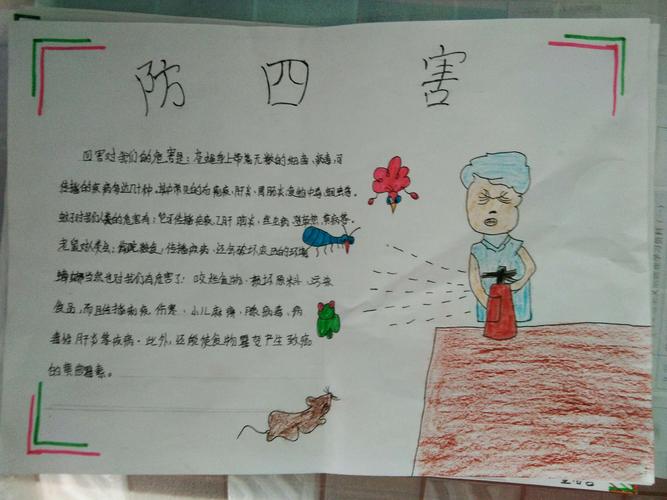 防四害
四害对我们的危害是：苍蝇身上带有无数的细菌、病毒、可
传播的疾病有近几十种。其中常见的有痢疾、肝炎、胃肠炎、食物中毒、蛔虫等。
蚊子对我们人类的危害有：它不传播疟疾、乙肝、脑炎、丝虫病、登革热、黄病等。
老鼠对人类：传播疾病，还会破坏我们的环境
蟑螂当然也对我们有危害了：咬坏食物、损坏原料、污染
食品，而且传播痢疾、伤寒、小儿麻痹、腺病毒、病
毒性肝炎等疾病。此外，还能使食物霉变产生致癌
的黄曲霉素。